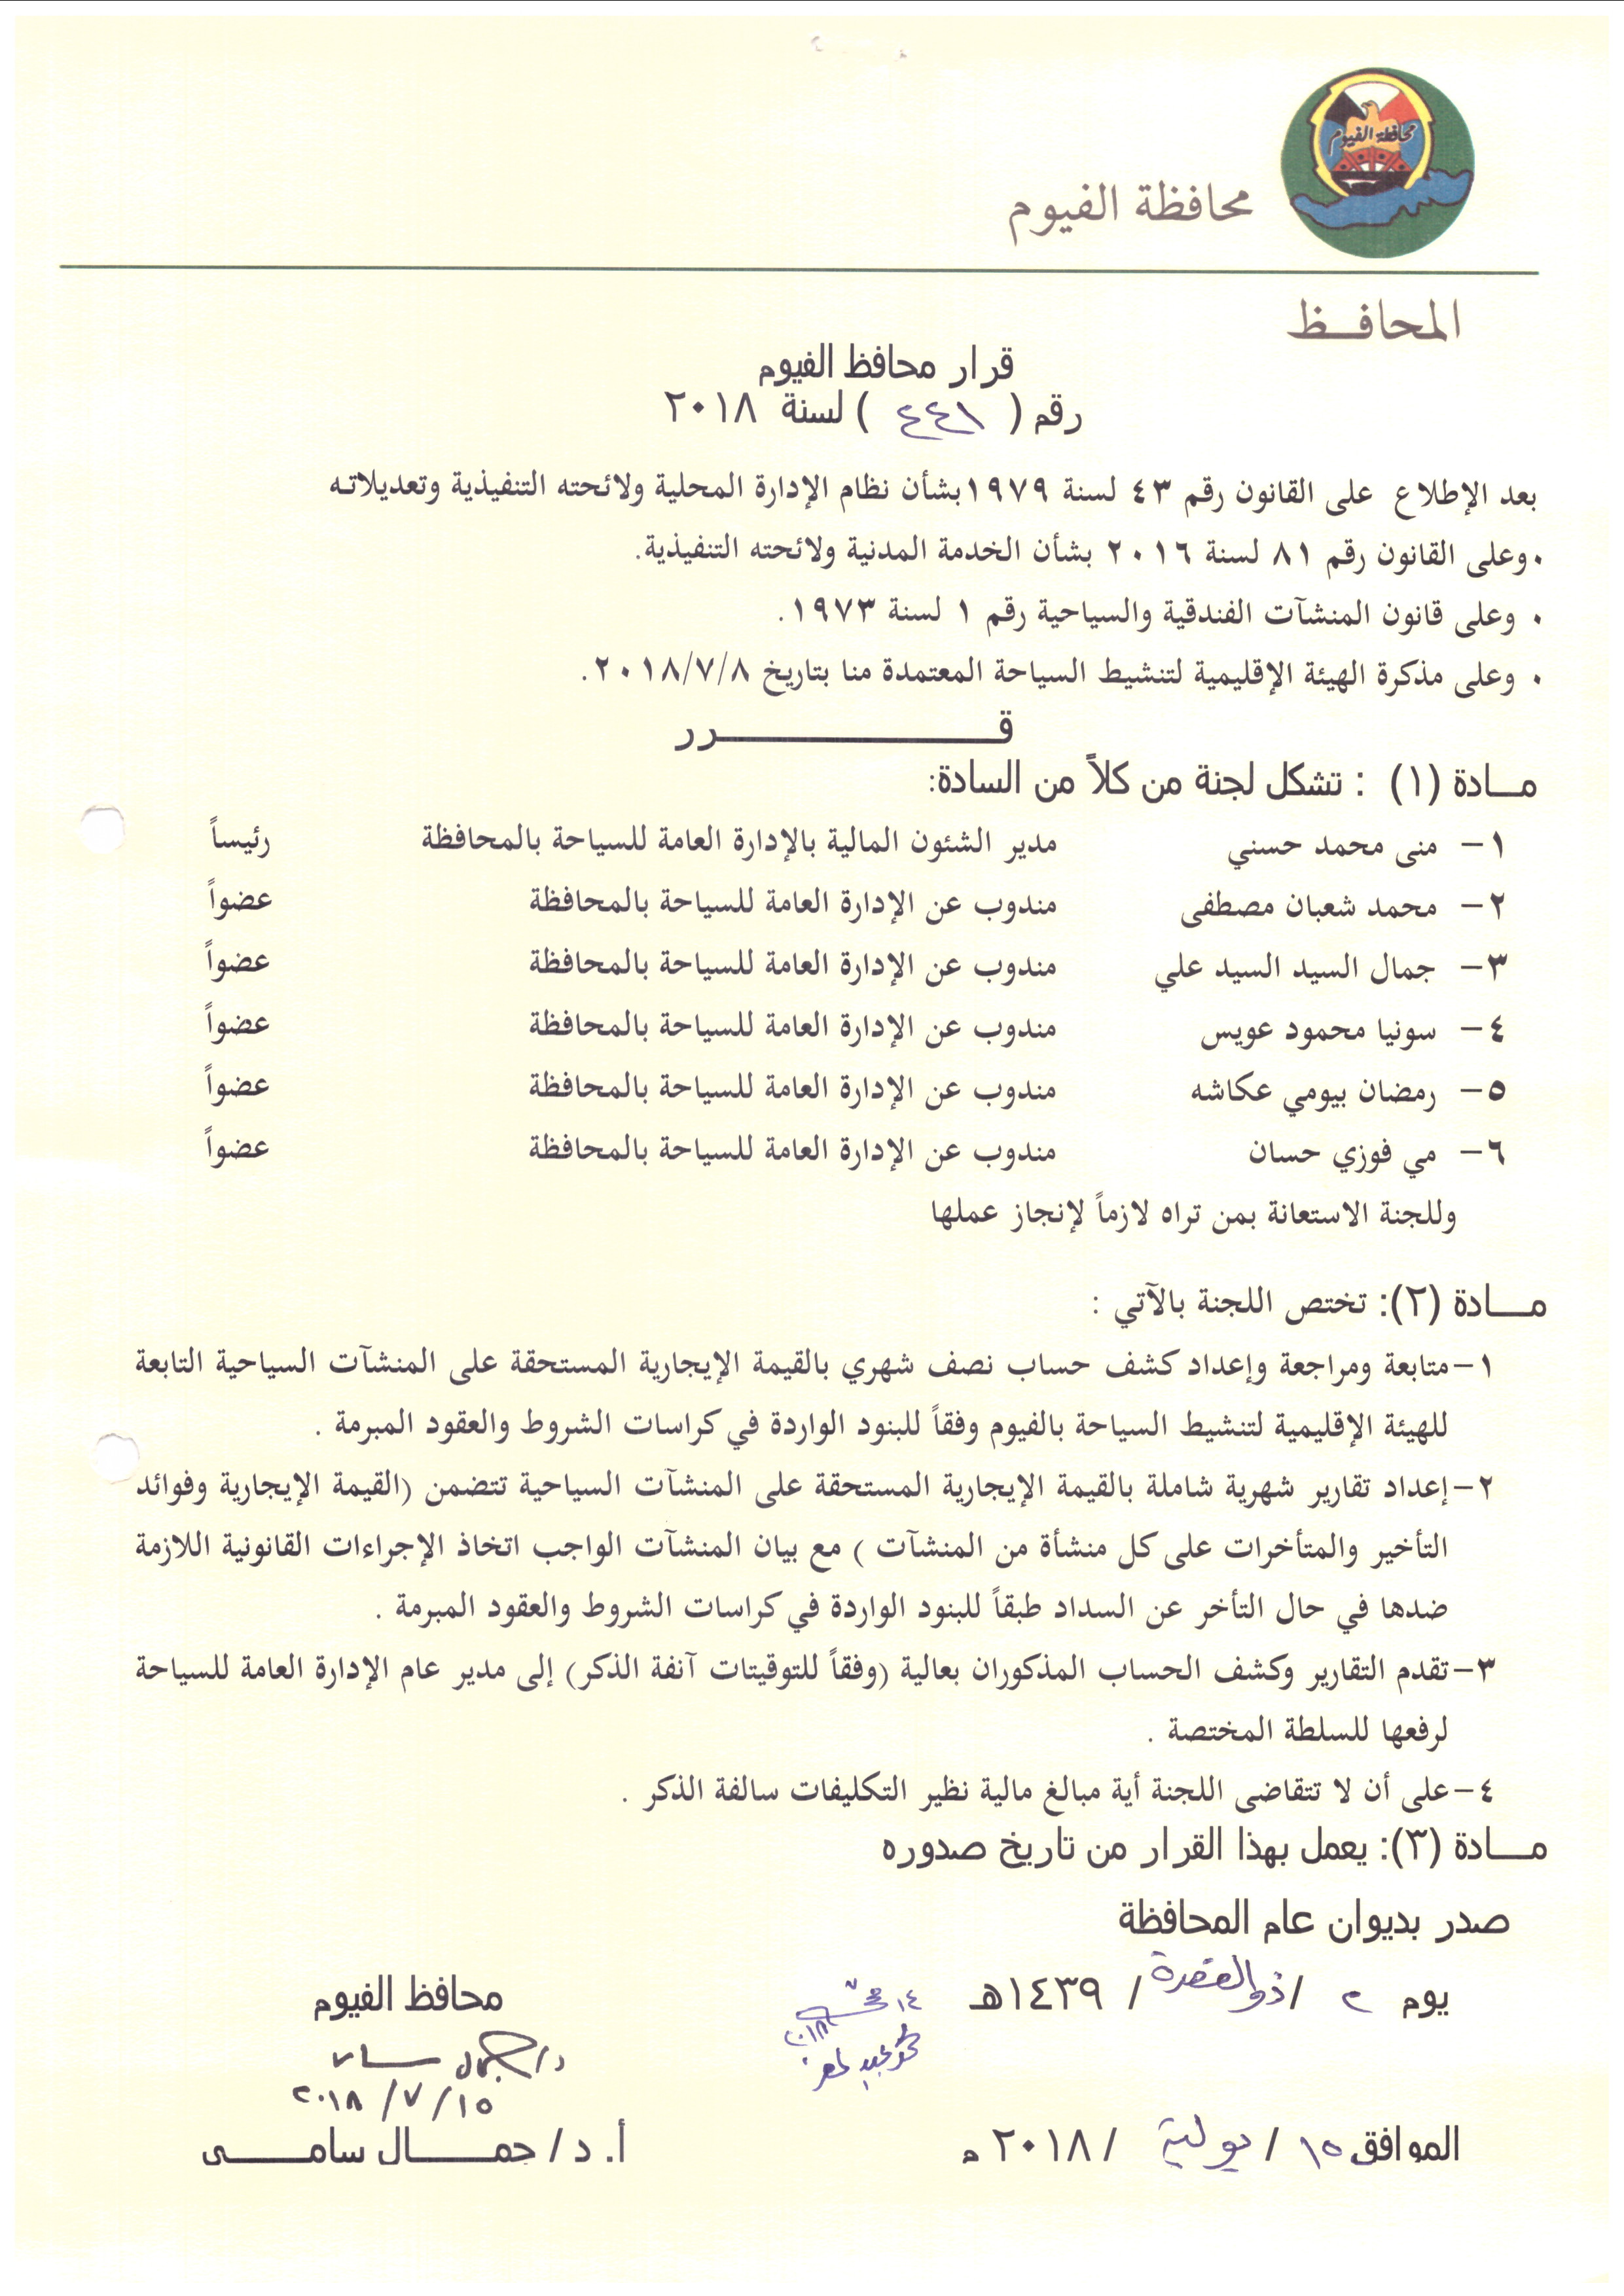 محافظة الفيوم
محافظة الفيوم
المحافــظ
قرار محافظ الفيوم
رقم ( ٤٤١ ) لسنة ٢٠١٨
بعد الإطلاع على القانون رقم ٤٣ لسنة ١٩٧٩ بشأن نظام الإدارة المحلية ولائحته التنفيذية وتعديلاته
٠ وعلى القانون رقم ٨١ لسنة ٢٠١٦ بشأن الخدمة المدنية ولائحته التنفيذية.
٠ وعلى قانون المنشآت الفندقية والسياحية رقم ١ لسنة ١٩٧٣.
٠ وعلى مذكرة الهيئة الإقليمية لتنشيط السياحة المعتمدة منا بتاريخ ٢٠١٨/٧/٨.
قــــــــــرر
مـــادة (١) : تشكل لجنة من كلاً من السادة:
١– منى محمد حسني مدير الشئون المالية بالإدارة العامة للسياحة بالمحافظة رئيساً
٢– محمد شعبان مصطفى مندوب عن الإدارة العامة للسياحة بالمحافظة عضواً
٣– جمال السيد السيد علي مندوب عن الإدارة العامة للسياحة بالمحافظة عضواً
٤– سونيا محمود عويس مندوب عن الإدارة العامة للسياحة بالمحافظة عضواً
٥– رمضان بيومي عكاشه مندوب عن الإدارة العامة للسياحة بالمحافظة عضواً
٦– مي فوزي حسان مندوب عن الإدارة العامة للسياحة بالمحافظة عضواً
وللجنة الاستعانة بمن تراه لازماً لإنجاز عملها
مـــادة (٢): تختص اللجنة بالآتي :
١–متابعة ومراجعة وإعداد كشف حساب نصف شهري بالقيمة الإيجارية المستحقة على المنشآت السياحية التابعة
للهيئة الإقليمية لتنشيط السياحة بالفيوم وفقاً للبنود الواردة في كراسات الشروط والعقود المبرمة .
٢–إعداد تقارير شهرية شاملة بالقيمة الإيجارية المستحقة على المنشآت السياحية تتضمن (القيمة الإيجارية وفوائد
التأخير والمتأخرات على كل منشأة من المنشآت ) مع بيان المنشآت الواجب اتخاذ الإجراءات القانونية اللازمة
ضدها في حال التأخر عن السداد طبقاً للبنود الواردة في كراسات الشروط والعقود المبرمة .
٣–تقدم التقارير وكشف الحساب المذكوران بعالية (وفقاً للتوقيتات آنفة الذكر) إلى مدير عام الإدارة العامة للسياحة
لرفعها للسلطة المختصة .
٤–على أن لا تتقاضى اللجنة أية مبالغ مالية نظير التكليفات سالفة الذكر .
مـــادة (٣): يعمل بهذا القرار من تاريخ صدوره
صدر بديوان عام المحافظة
يوم ٢ / ذو القعدة / ١٤٣٩هـ
محافظ الفيوم
٢٠١٨/٧/١٥
الموافق ١٥ / يولية / ٢٠١٨ م
أ. د/ جمــــال سامــــى